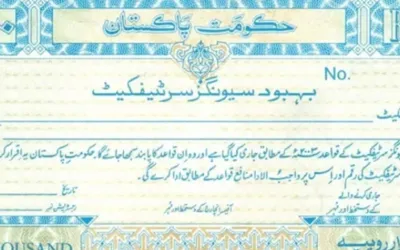 حکومت پاکستان
No.
بہبود سیونگز سرٹیفکیٹ
ونگز سرٹیفکیٹ کے قواعد ۲۰۰۳ء کے مطابق جاری کیا گیا ہے اور وہ ان قواعد کا پابند سمجھا جائے گا۔ حکومت پاکستان یہ اقرار کر
سرٹیفکیٹ کی رقم اور اس پر واجب الادا منافع قواعد کے مطابق ادا کرے گی۔
تاریخ
جاری کرنے والے
کے دستخط اور مہر
آفیسر انچارج کے دستخط اور مہر
رجسٹریشن نمبر
OUSAND
ار روپے